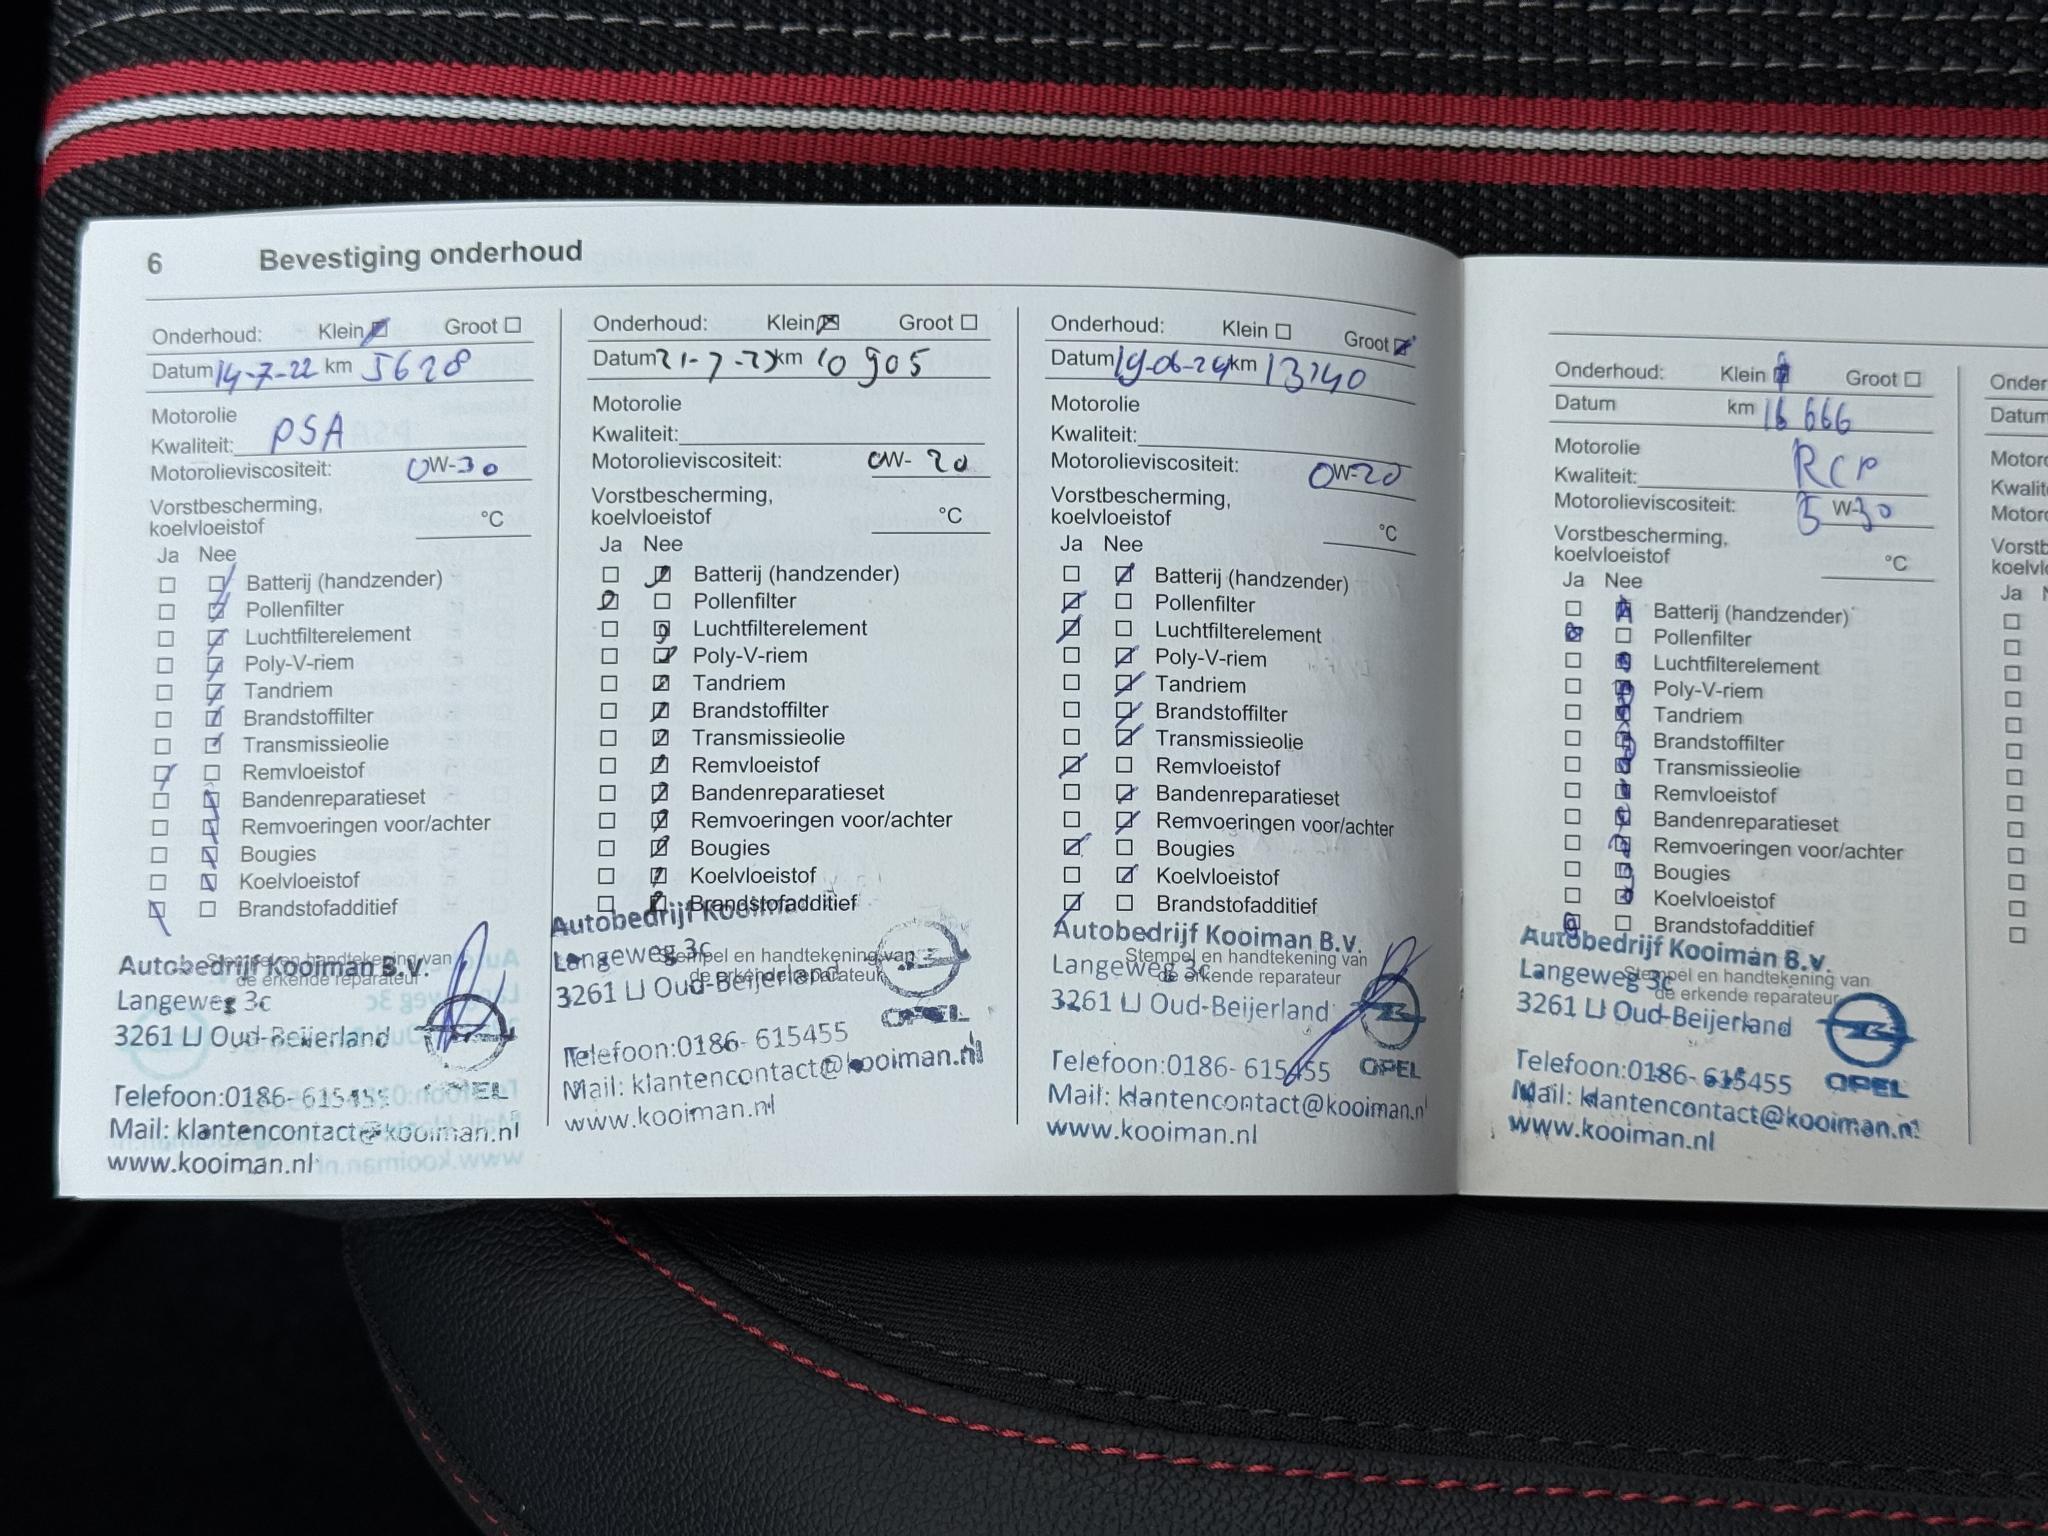 6 Bevestiging onderhoud
Onderhoud: Klein Groot
Datum 14-7-22 km 5628
Motorolie
Kwaliteit: PSA
Motorolieviscositeit: 0W-30
Vorstbescherming,
koelvloeistof °C
Ja Nee
Batterij (handzender)
Pollenfilter
Luchtfilterelement
Poly-V-riem
Tandriem
Brandstoffilter
Transmissieolie
Remvloeistof
Bandenreparatieset
Remvoeringen voor/achter
Bougies
Koelvloeistof
Brandstofadditief
Stempel en handtekening van
de erkende reparateur
Autobedrijf Kooiman B.V.
Langeweg 3c
3261 LJ Oud-Beijerland
Telefoon:0186-615455
OPEL
Mail: klantencontact@kooiman.nl
www.kooiman.nl
Onderhoud: Klein Groot
Datum 21-7-23 km 10905
Motorolie
Kwaliteit:
Motorolieviscositeit: 0W-20
Vorstbescherming,
koelvloeistof °C
Ja Nee
Batterij (handzender)
Pollenfilter
Luchtfilterelement
Poly-V-riem
Tandriem
Brandstoffilter
Transmissieolie
Remvloeistof
Bandenreparatieset
Remvoeringen voor/achter
Bougies
Koelvloeistof
Brandstofadditief
Stempel en handtekening van
de erkende reparateur
Autobedrijf Kooiman
Langeweg 3c
3261 LJ Oud-Beijerland
OPEL
Telefoon:0186-615455
Mail: klantencontact@kooiman.nl
www.kooiman.nl
Onderhoud: Klein Groot
Datum 19-06-24 km 13240
Motorolie
Kwaliteit:
Motorolieviscositeit: 0W-20
Vorstbescherming,
koelvloeistof °C
Ja Nee
Batterij (handzender)
Pollenfilter
Luchtfilterelement
Poly-V-riem
Tandriem
Brandstoffilter
Transmissieolie
Remvloeistof
Bandenreparatieset
Remvoeringen voor/achter
Bougies
Koelvloeistof
Brandstofadditief
Stempel en handtekening van
de erkende reparateur
Autobedrijf Kooiman B.V.
Langeweg 3c
3261 LJ Oud-Beijerland
Telefoon:0186-615455
OPEL
Mail: klantencontact@kooiman.nl
www.kooiman.nl
Onderhoud: Klein Groot
Datum km 16 666
Motorolie
Kwaliteit: RCP
Motorolieviscositeit: 5W-30
Vorstbescherming,
koelvloeistof °C
Ja Nee
Batterij (handzender)
Pollenfilter
Luchtfilterelement
Poly-V-riem
Tandriem
Brandstoffilter
Transmissieolie
Remvloeistof
Bandenreparatieset
Remvoeringen voor/achter
Bougies
Koelvloeistof
Brandstofadditief
Stempel en handtekening van
de erkende reparateur
Autobedrijf Kooiman B.V.
Langeweg 3c
3261 LJ Oud-Beijerland
Telefoon:0186-615455
OPEL
Mail: klantencontact@kooiman.nl
www.kooiman.nl
Onder
Datum
Motoro
Kwalit
Motoro
Vorstb
koelvl
Ja